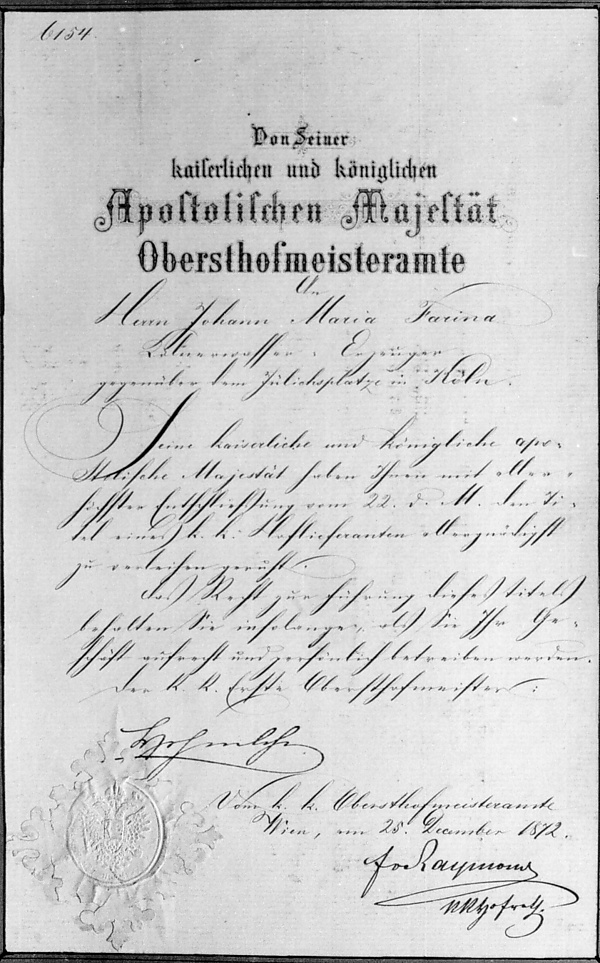 6154.
Von Seiner
kaiserlichen und königlichen
Apostolischen Majestät
Obersthofmeisteramte
An
Herrn Johann Maria Farina
Kölnerwasser-Erzeuger
gegenüber dem Jülichsplatze in Köln.
Seine kaiserliche und königliche apo-
stolische Majestät haben Ihnen mit aller-
höchster Entschließung vom 22. d. M. den Ti-
tel eines k. k. Hoflieferanten allergnädigst
zu verleihen geruht.
Das Recht zur Führung dieses Titels
behalten Sie insolange, als Sie Ihr Ge-
schäft aufrecht und persönlich betreiben werden.
Der k. k. Erste Obersthofmeister:
Hohenlohe
Vom k. k. Obersthofmeisteramte
Wien, am 25. December 1872.
Raymond
Hofrath.